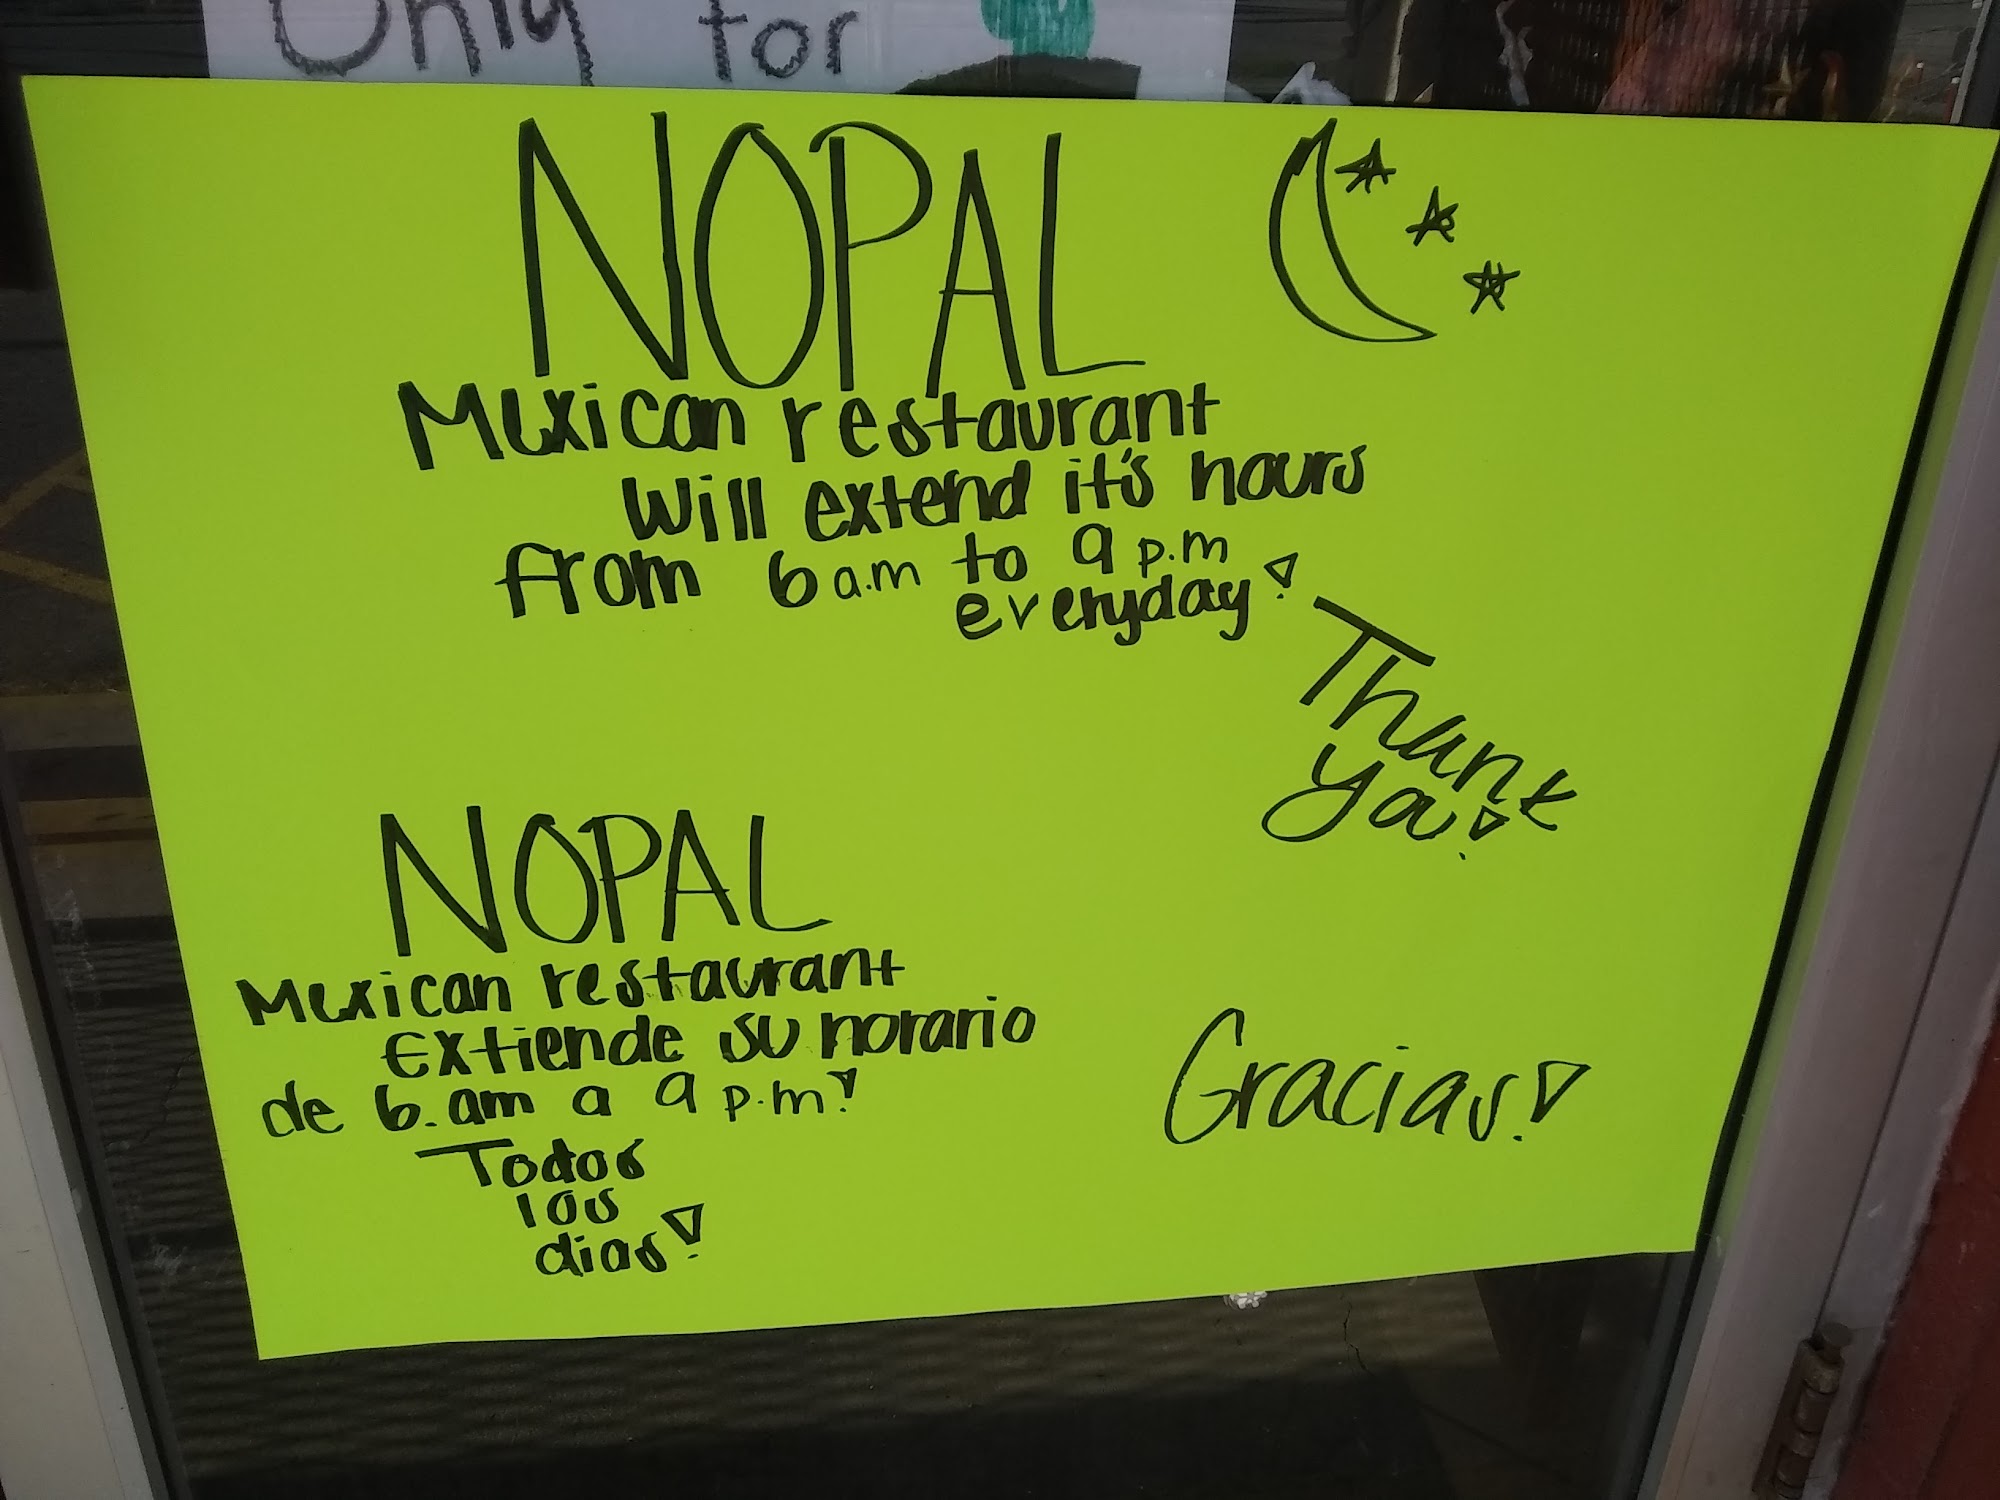 Only for
NOPAL
Mexican restaurant
will extend it's hours
from 6 a.m to 9 p.m
everyday!
Thank
you!
NOPAL
Mexican restaurant
Extiende su horario
de 6.am a 9 p.m!
Todos
los
dias!
Gracias!